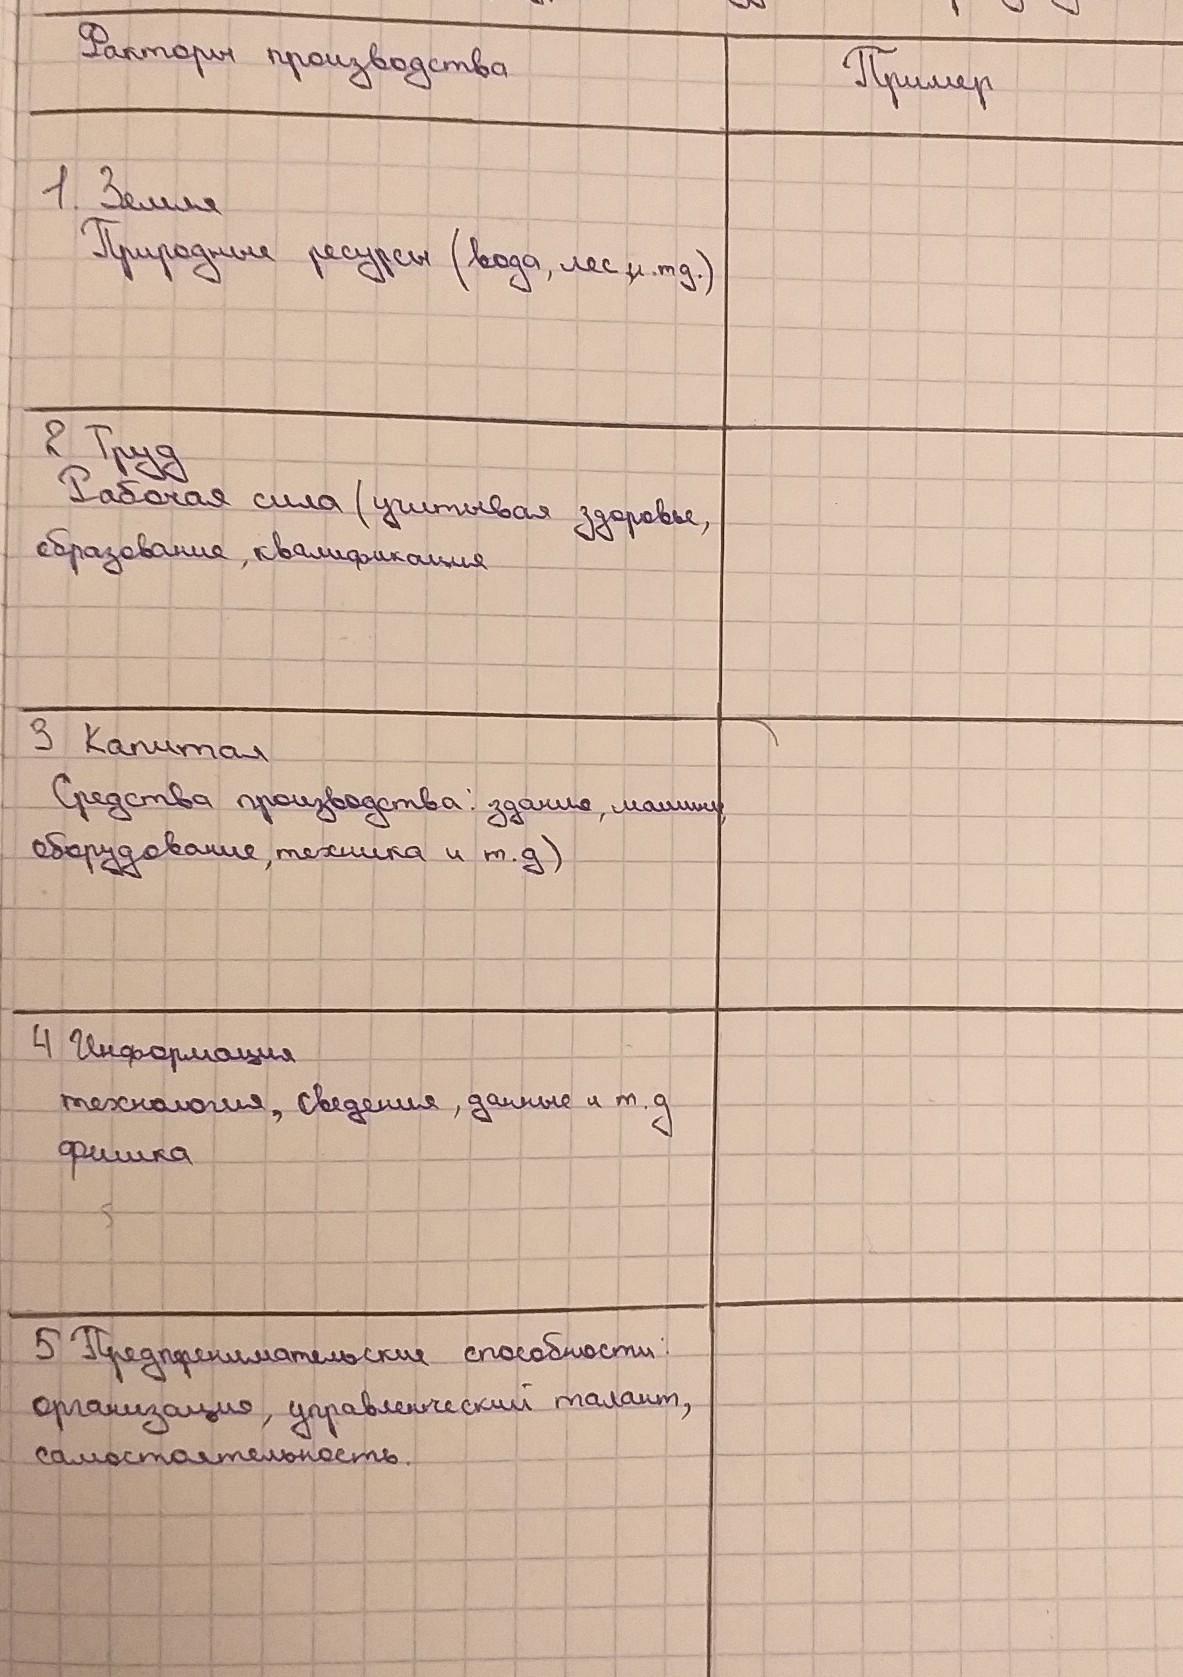 Факторы производства
Пример
1. Земля
Природные ресурсы (вода, лес, и.тд.)
2 Труд
Рабочая сила (учитывая здоровье,
образование, квалификация
3 Капитал
Средства производства: здание, машины,
оборудование, техника и т.д)
4 Информация
технология, сведения, данные и т.д
фишка
5 Предпренимательские способности:
организация, управленческий талант,
самостоятельность.